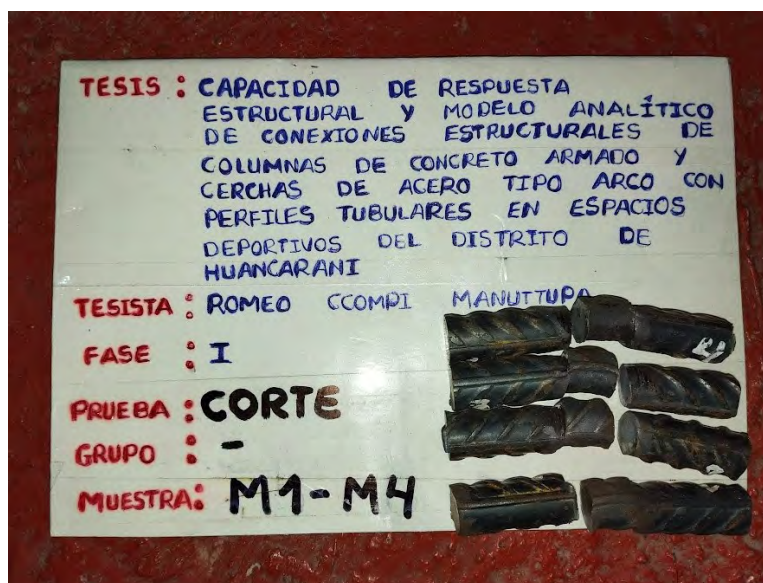 TESIS : CAPACIDAD DE RESPUESTA
ESTRUCTURAL Y MODELO ANALÍTICO
DE CONEXIONES ESTRUCTURALES DE
COLUMNAS DE CONCRETO ARMADO Y
CERCHAS DE ACERO TIPO ARCO CON
PERFILES TUBULARES EN ESPACIOS
DEPORTIVOS DEL DISTRITO DE
HUANCARANI
TESISTA : ROMEO CCOMPI MANUTTUPA
FASE : I
PRUEBA : CORTE
GRUPO : -
MUESTRA: M1-M4